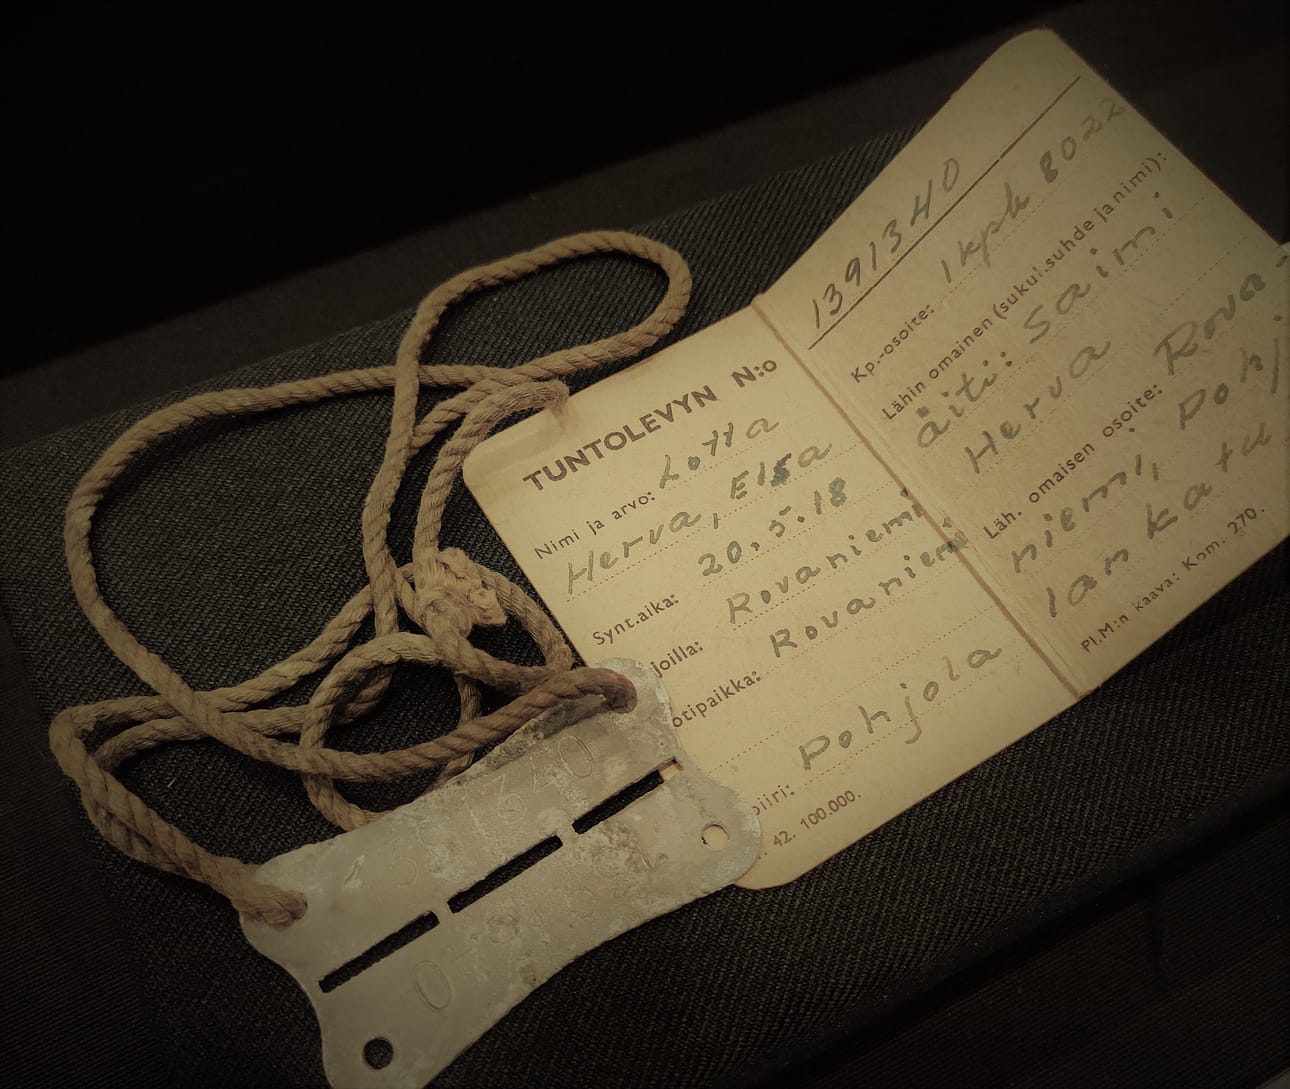 TUNTOLEVYN N:o
Nimi ja arvo: Lotta
Herva, Elsa
Synt.aika: 20.5.18
joilla: Rovaniemi
otipaikka: Rovaniemi
piiri: Pohjola
42. 100.000.
1391340
Kp.-osoite: 1kpk 8022
Lähin omainen (sukul.suhde ja nimi):
äiti: Saimi
Herva
Läh. omaisen osoite: Rova-
niemi, Pohj
lankatu
Pl.M:n kaava: Kom. 270.
1340
0